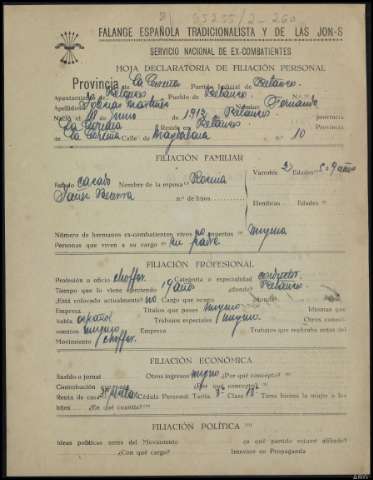 95255/2-260
FALANGE ESPAÑOLA TRADICIONALISTA Y DE LAS JON-S
SERVICIO NACIONAL DE EX-COMBATIENTES
HOJA DECLARATORIA DE FILIACIÓN PERSONAL
Provincia de La Coruña Partido Judicial de Betanzos
Ayuntamiento de Betanzos Pueblo de Betanzos
Apellidos Martínez Nombre Fernando
Nació el de Junio de 1912 Betanzos provincia
La Coruña Reside en Betanzos Provincia
de La Coruña Calle Magdalena n.º 10
FILIACIÓN FAMILIAR
Estado casado Nombre de la esposa Rosina Varones 2 Edades 5-9 años
Becerra n.º de hijos Hembras Edades
Número de hermanos ex-combatientes vivos no muertos ninguno
Personas que viven a su cargo mi padre
FILIACIÓN PROFESIONAL
Profesión u oficio choffer Categoría o especialidad conductor
Tiempo que lo viene ejerciendo 19 años ¿dónde? Betanzos
¿Está colocado actualmente? no Cargo que ocupa
Empresa Títulos que posee ninguno Idiomas que
habla español Trabajos especiales ninguno Otros conoci-
mientos ninguno Empresa Trabajos que realizaba antes del
Movimiento choffer
FILIACIÓN ECONÓMICA
Sueldo o jornal Otros ingresos ninguno ¿Por qué concepto?
Contribución ¿Por qué concepto?
Renta de casa Cédula Personal Tarifa Clase Tiene bienes la mujer o los
hijos ¿En qué cuantía?
FILIACIÓN POLÍTICA
Ideas políticas antes del Movimiento ¿a qué partido estuvo afiliado?
¿Con qué cargo? Intervino en Propaganda